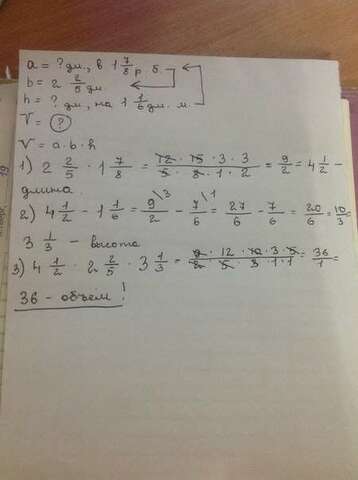 a = ? дм., в 1 7/8 р. б.
b = 2 2/5 дм.
h = ? дм, на 1 1/6 дм. м.
V = ?
V = a · b · h
1) 2 2/5 · 1 7/8 = 12 · 15 · 3 · 3 / 5 · 8 · 1 · 2 = 9/2 = 4 1/2 –
длина.
2) 4 1/2 – 1 1/6 = 9/2 \3 – 7/6 \1 = 27/6 – 7/6 = 20/6 = 10/3
3 1/3 – высота
3) 4 1/2 · 2 2/5 · 3 1/3 = 9 · 12 · 10 · 3 · 6 / 2 · 5 · 3 · 1 · 1 = 36/1 =
36 – объём !